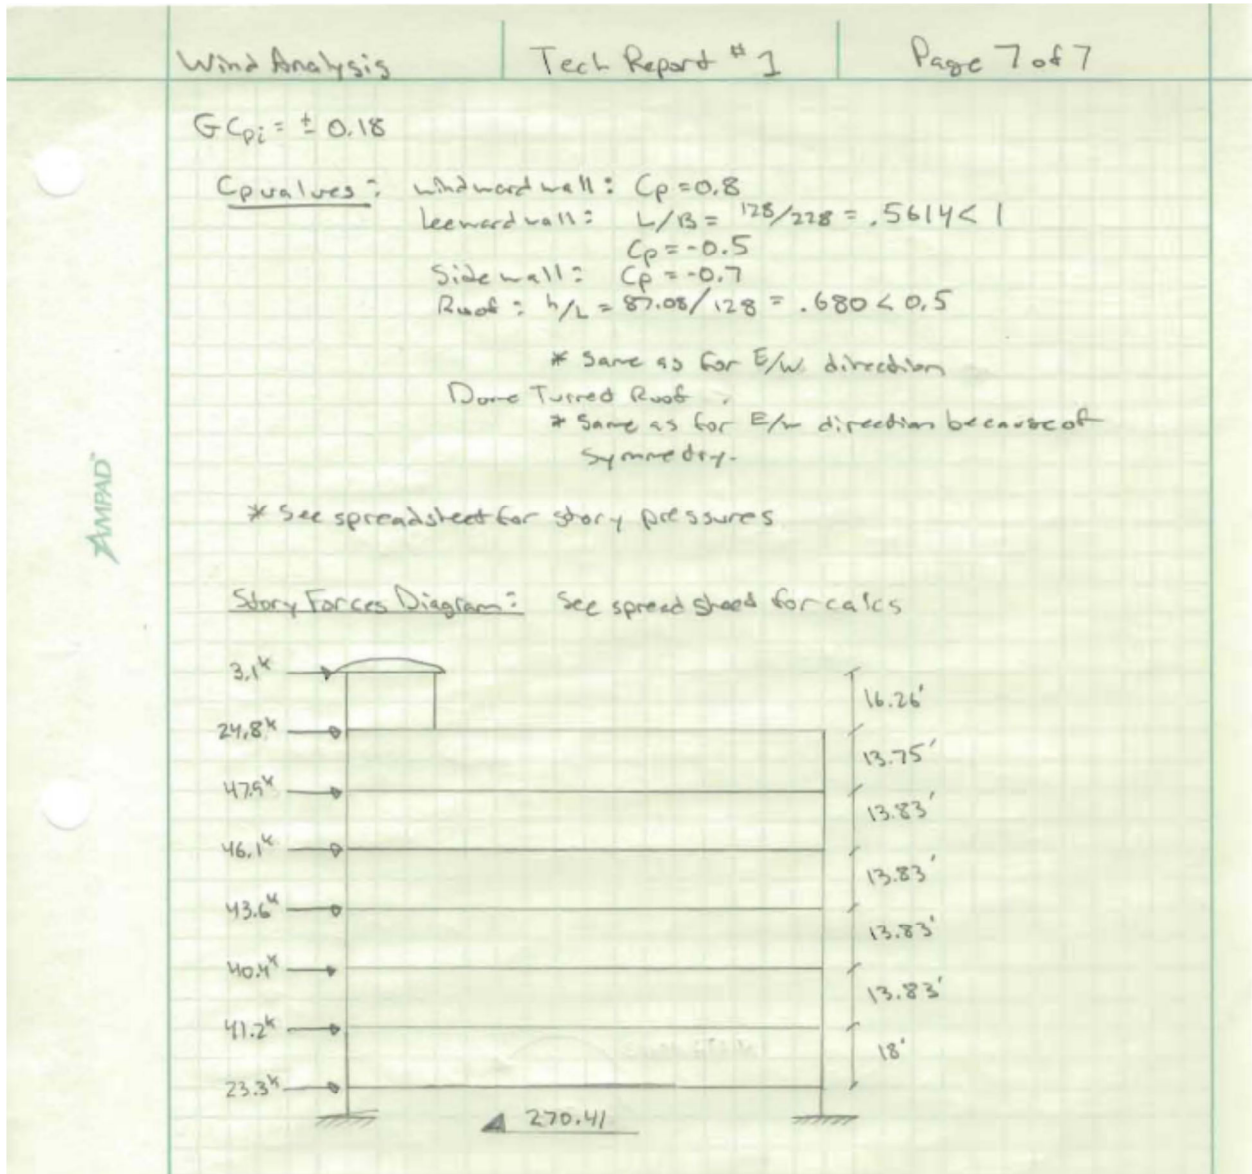 Wind Analysis Tech Report #1 Page 7 of 7
GCpi = ± 0.18
Cp values: windward wall: Cp = 0.8
leeward wall: L/B = 128/228 = .5614 < 1
Cp = -0.5
Side wall: Cp = -0.7
Roof: h/L = 87.08/128 = .680 < 0.5
* Same as for E/W direction
Dome Turred Roof
* Same as for E/W direction because of
Symmetry.
AMPAD
* See spreadsheet for story pressures
Story Forces Diagram: See spread sheet for calcs
3.1k
16.26'
24.8k
13.75'
47.5k
13.83'
46.1k
13.83'
43.6k
13.83'
40.4k
13.83'
41.2k
18'
23.3k
270.41